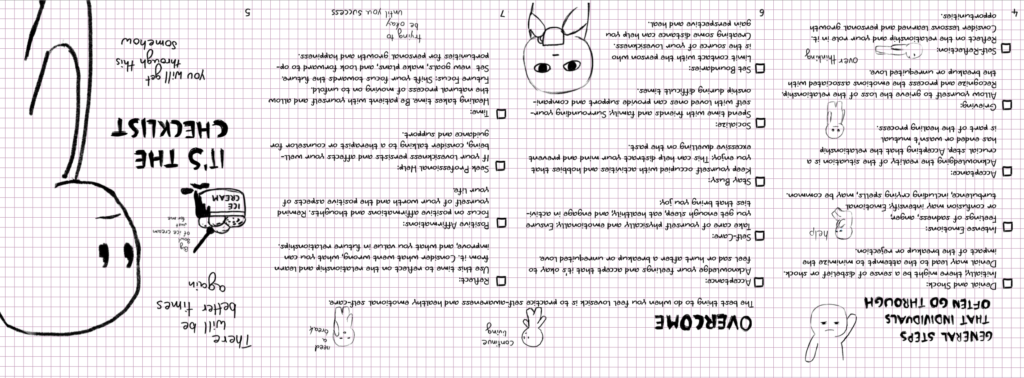 GENERAL STEPS
THAT INDIVIDUALS
OFTEN GO THROUGH
Denial and Shock:
Initially, there might be a sense of disbelief or shock.
Denial may lead to the attempt to minimize the
impact of the breakup or rejection.
Intense Emotions:
Feelings of sadness, anger,
or confusion may intensify. Emotional
turbulence, including crying spells, may be common.
help
Acceptance:
Acknowledging the reality of the situation is a
crucial step. Accepting that the relationship
has ended or wasn't mutual
is part of the healing process.
Grieving:
Allow yourself to grieve the loss of the relationship.
Recognize and process the emotions associated with
the breakup or unrequited love.
over thinking
Self-Reflection:
Reflect on the relationship and your role in it.
Consider lessons learned and personal growth
opportunities.
4
OVERCOME
continue
living
need
a
break
The best thing to do when you feel lovesick is to practice self-awareness and healthy emotional self-care.
Acceptance:
Acknowledge your feelings and accept that it's okay to
feel sad or hurt after a breakup or unrequited love.
Self-Care:
Take care of yourself physically and emotionally. Ensure
you get enough sleep, eat healthily, and engage in activi-
ties that bring you joy.
Stay Busy:
Keep yourself occupied with activities and hobbies that
you enjoy. This can help distract your mind and prevent
excessive dwelling on the past.
Socialize:
Spend time with friends and family. Surrounding your-
self with loved ones can provide support and compani-
onship during difficult times.
Set Boundaries:
Limit contact with the person who
is the source of your lovesickness.
Creating some distance can help you
gain perspective and heal.
6
Reflect:
Use this time to reflect on the relationship and learn
from it. Consider what went wrong, what you can
improve, and what you value in future relationships.
Positive Affirmations:
Focus on positive affirmations and thoughts. Remind
yourself of your worth and the positive aspects of
your life.
Seek Professional Help:
If your lovesickness persists and affects your well-
being, consider talking to a therapist or counselor for
guidance and support.
Time:
Healing takes time. Be patient with yourself and allow
the natural process of moving on to unfold.
Future Focus: Shift your focus towards the future.
Set new goals, make plans, and look forward to op-
portunities for personal growth and happiness.
trying to
be okay
until you success
7
There
will be
better times
again
Big
bowl
of ice cream
just
for me
ICE
CREAM
IT'S THE
CHECKLIST
you will get
through this
somehow
5